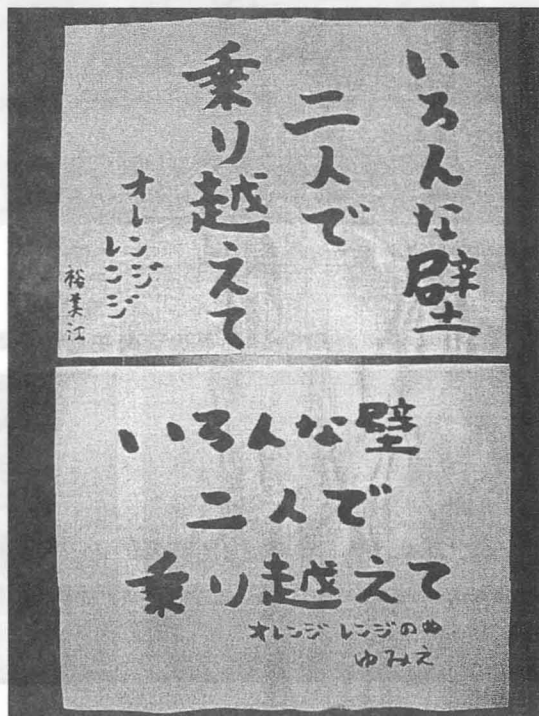 いろんな壁
二人で
乗り越えて
オレンジ
レンジ
裕美江
いろんな壁
二人で
乗り越えて
オレンジ レンジのうた
ゆみえ